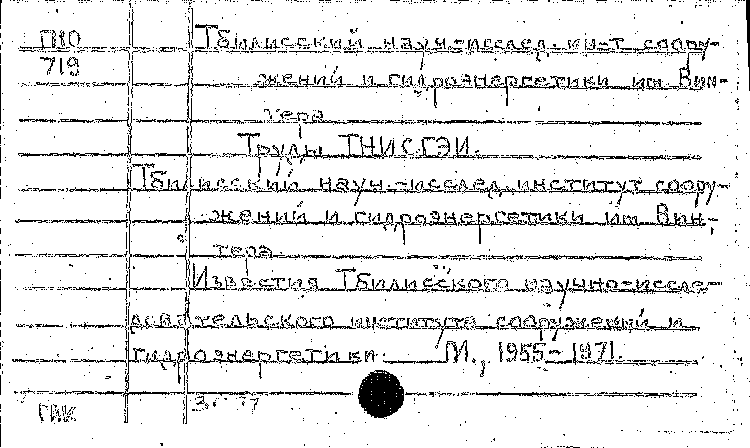 П10
719
Тбилисский науч.-исслед. ин-т соору-
жений и гидроэнергетики им. Вин-
тера
Труды ТНИСГЭИ.
Тбилисский науч.-исслед. институт соору-
жений и гидроэнергетики им. Вин-
тера
Известия Тбилисского научно-иссле-
довательского института сооружений и
гидроэнергетики. М., 1955-1971.
ГПК